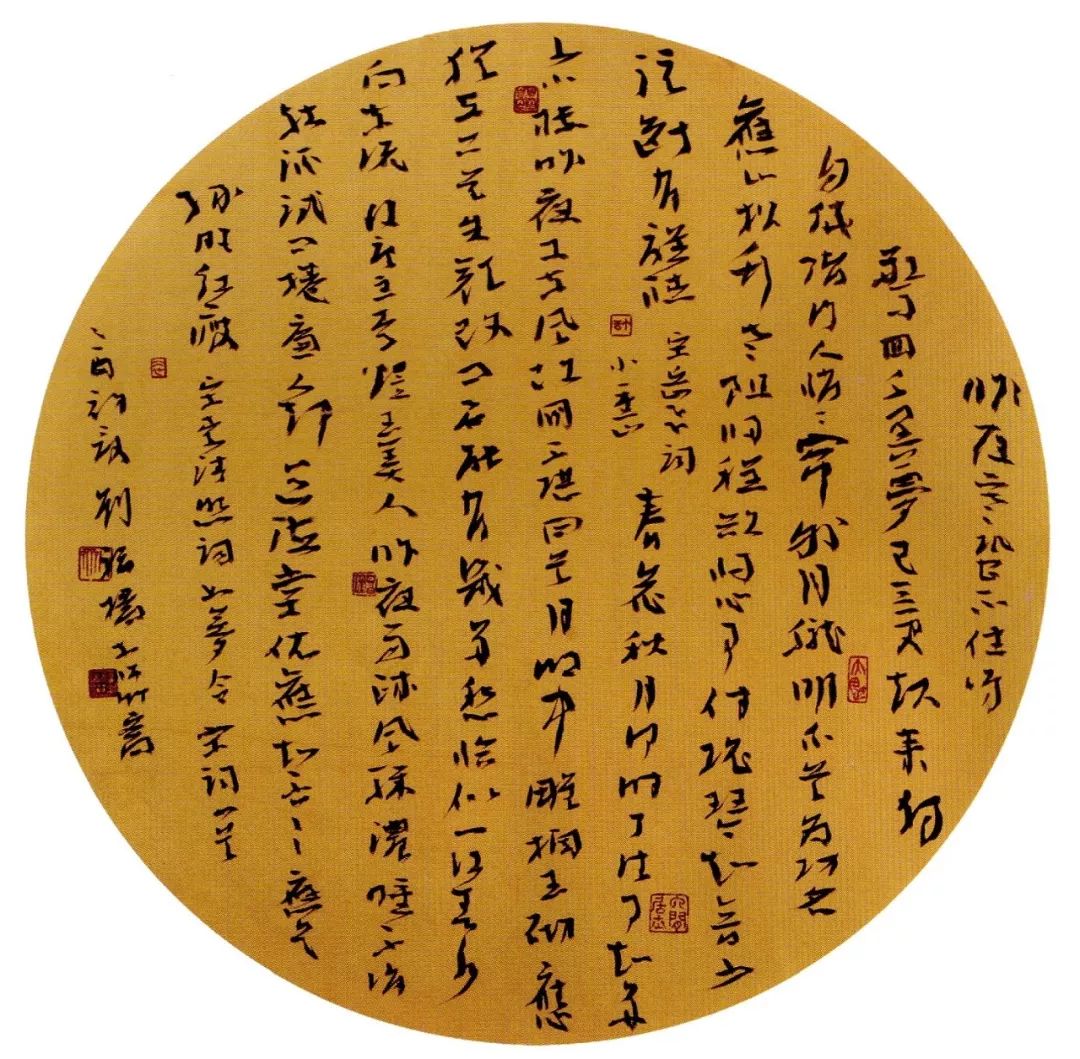 昨夜寒蛩不住鳴
驚回千里夢已三更起来獨
自繞階行人悄悄簾外月朧明白首為功名
舊山松竹老阻归程欲将心事付瑶琴知音少
弦断有誰聽 宋岳飞词 小重山 春花秋月何时了往事知多
少小楼昨夜又东风故國不堪回首月明中雕栏玉砌應
猶在只是朱颜改问君能有幾多愁恰似一江春水
向东流 虞美人 昨夜雨疏风骤濃睡不消
残酒试问捲簾人却道海棠依舊知否知否應是
绿肥红瘦 宋李清照词如夢令 宋词一首
乙酉初秋 劉 书于 竹斋